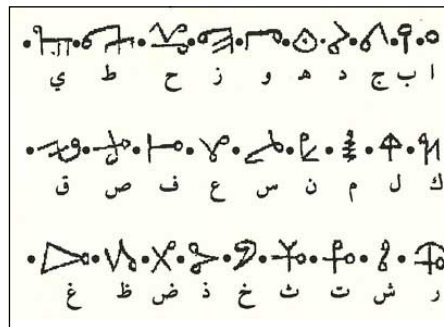 ا ب ج د هـ و ز ح ط ي
ك ل م ن س ع ف ص ق
ر ش ت ث خ ذ ض ظ غ